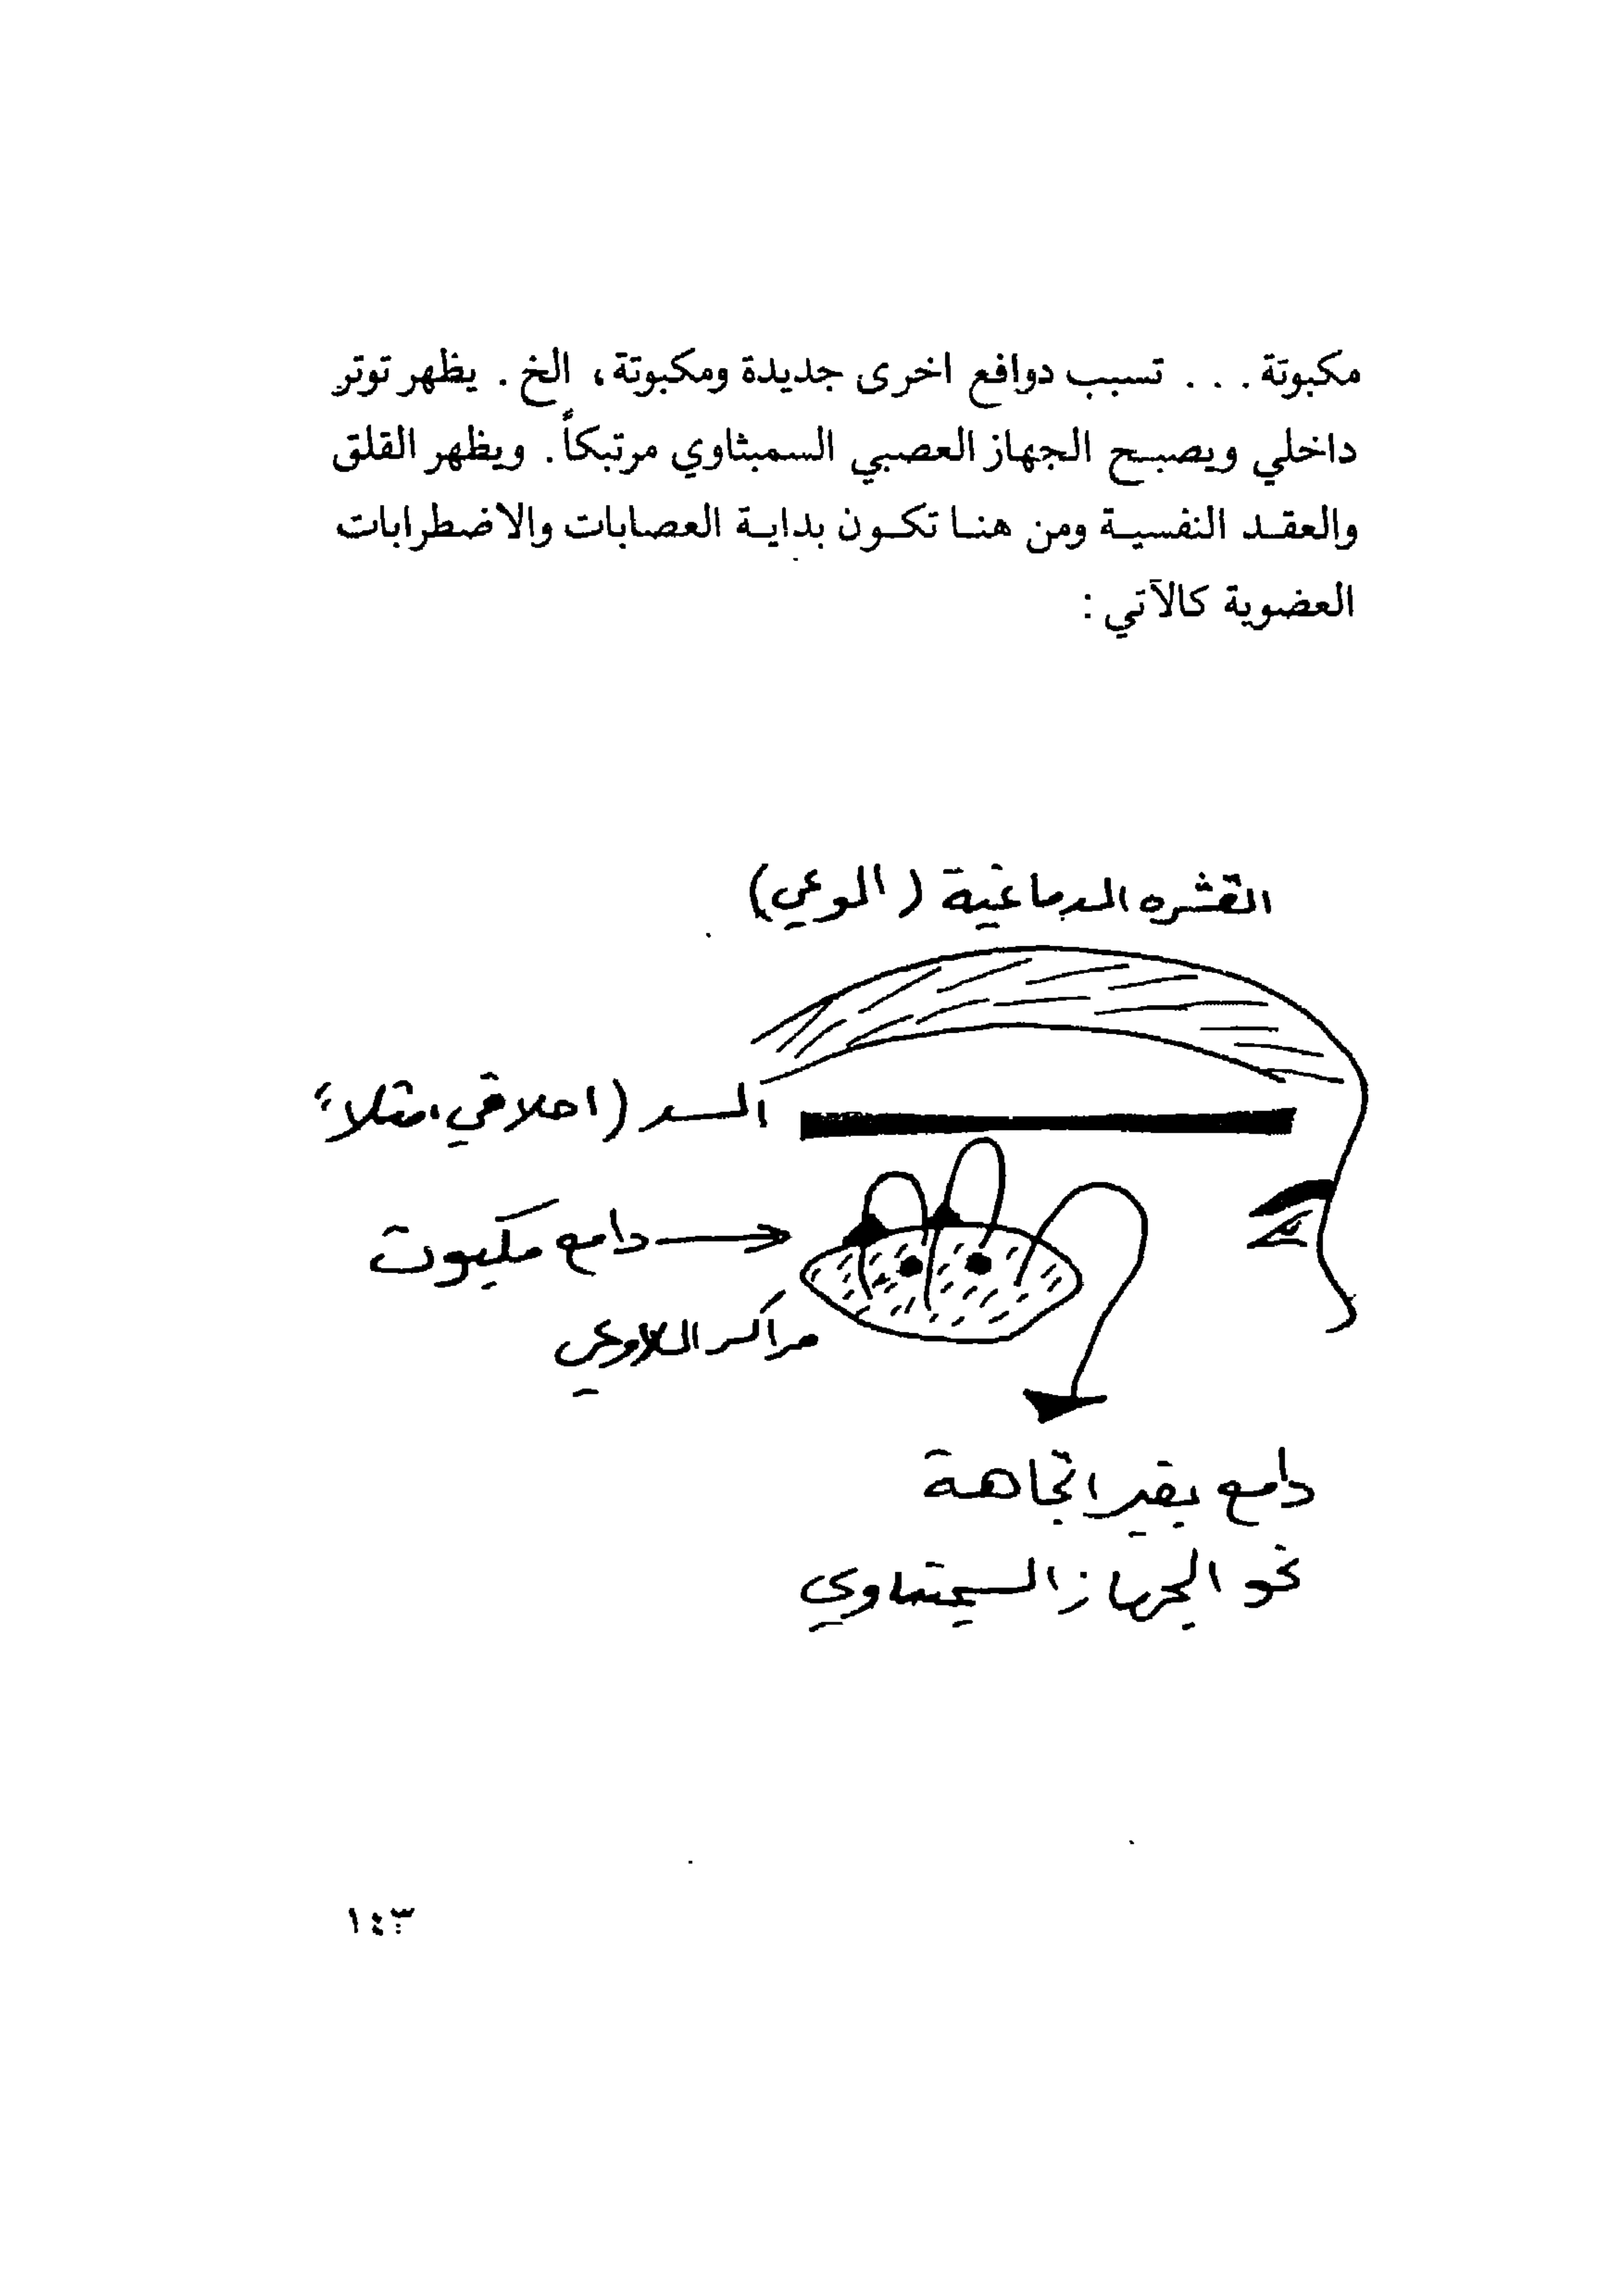 مكبوتة . . . تسبب دوافع اخرى جديدة ومكبوتة، الخ . يظهر توتر
داخلي ويصبح الجهاز العصبي السمبثاوي مرتبكاً . ويظهر القلق
والعقد النفسية ومن هنا تكون بداية العصابات والاضطرابات
العضوية كالآتي :
القشره الدماغية (الوعي)
السد (اخلاقي مثلاً)
دافع مكبوت
مراكز اللاوعي
دافع يغير اتجاهة
نحو الجهاز السيمبتاوي
١٤٣